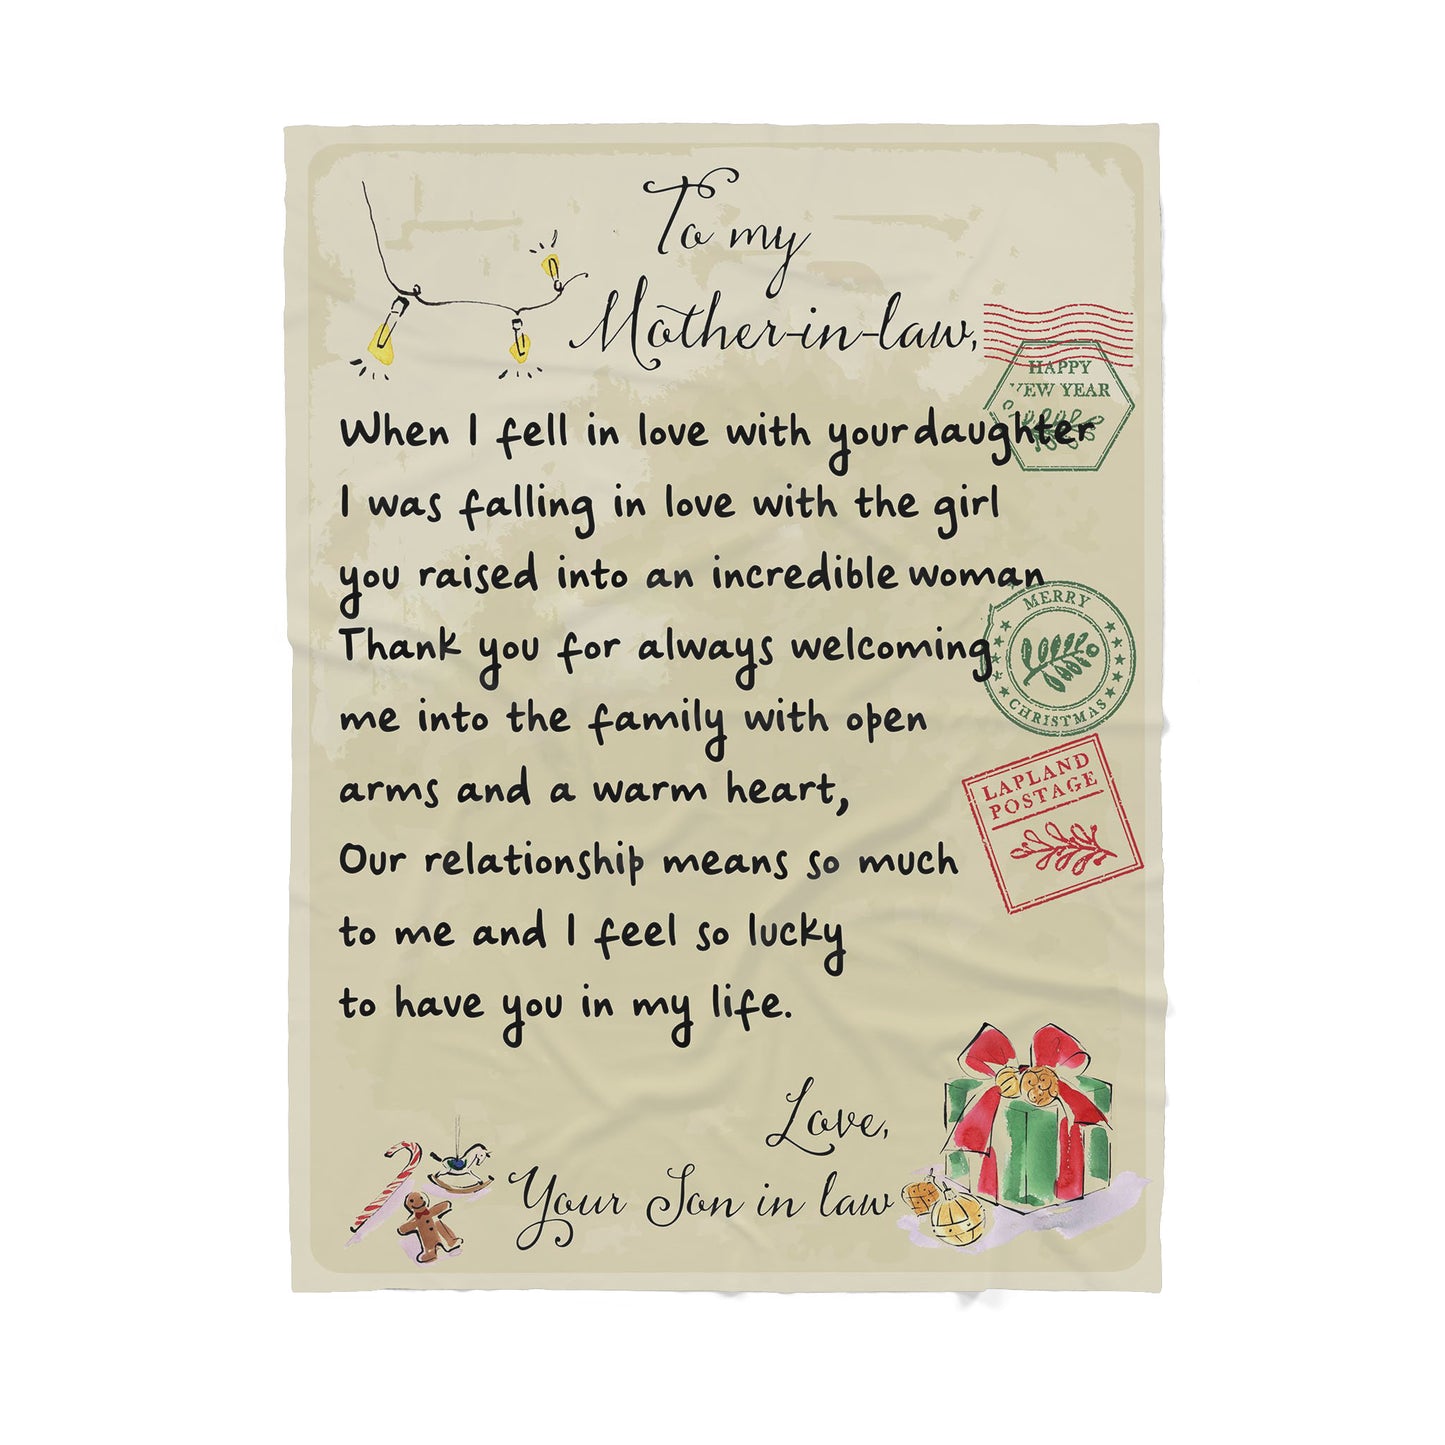 To my
Mother-in-law,
HAPPY
NEW YEAR
When I fell in love with your daughter
I was falling in love with the girl
you raised into an incredible woman
MERRY
CHRISTMAS
Thank you for always welcoming
me into the family with open
arms and a warm heart,
LAPLAND
POSTAGE
Our relationship means so much
to me and I feel so lucky
to have you in my life.
Love,
Your Son in law